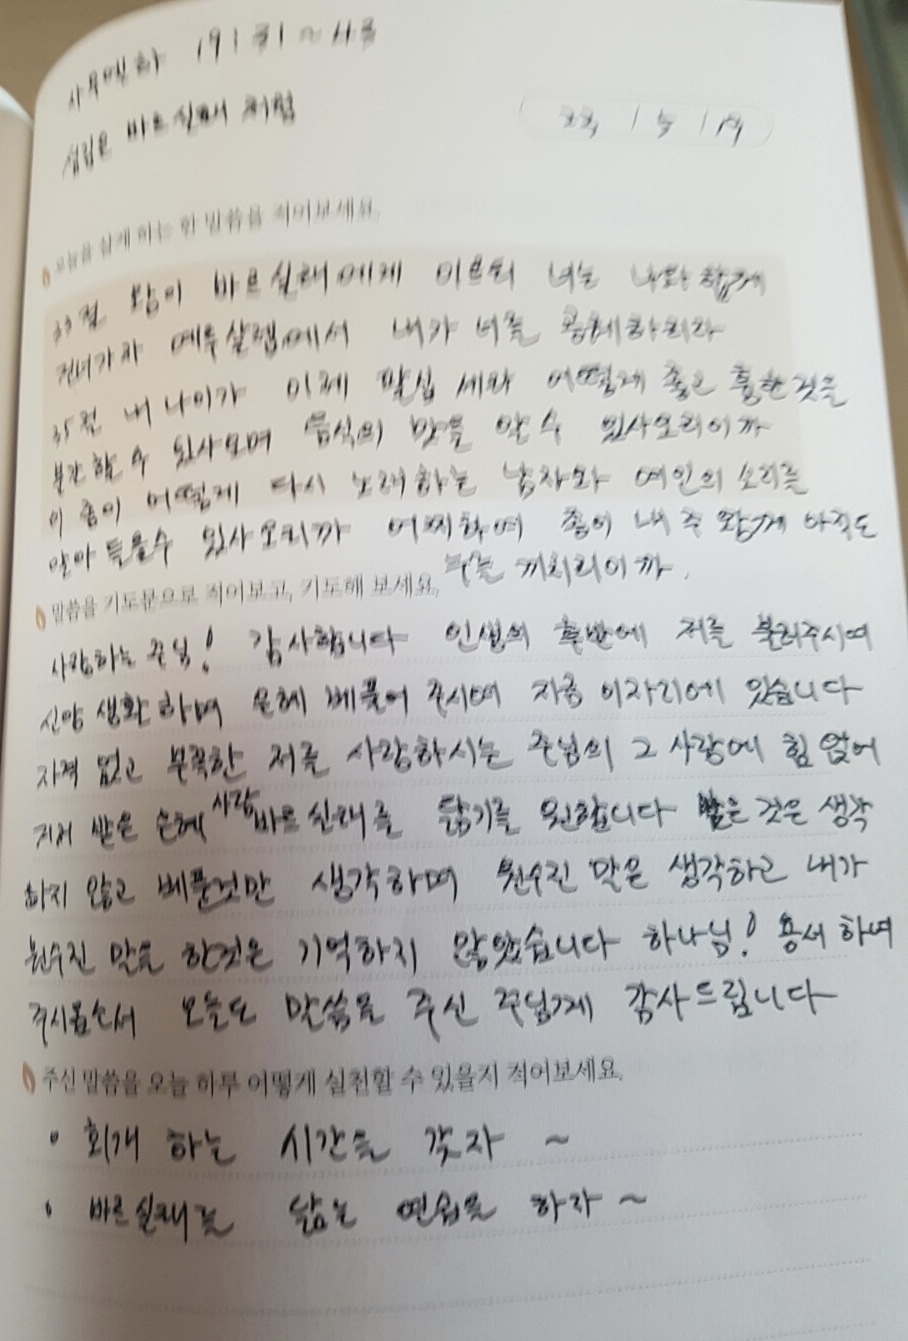 사무엘하 19:31~43
섬김은 바르실래처럼
오늘을 살게 하는 한 말씀을 적어보세요.
33절 왕이 바르실래에게 이르되 너는 나와 함께
건너가자 예루살렘에서 내가 너를 공궤하리라
35절 내 나이가 이제 팔십 세라 어떻게 좋고 흉한 것을
분간할 수 있사오며 음식의 맛을 알 수 있사오리이까
이 종이 어떻게 다시 노래하는 남자와 여인의 소리를
알아 들을수 있사오리까 어찌하여 종이 내 주 왕께 아직도
누를 끼치리이까.
말씀을 기도문으로 적어보고, 기도해 보세요.
사랑하는 주님! 감사합니다 인생의 후반에 저를 불러주시며
신앙 생활 하며 은혜 베풀어 주시며 지금 이자리에 있습니다
자격 없고 부족한 저를 사랑하시는 주님의 그 사랑에 힘 입어
거저 받은 은혜 사랑 바르실래를 닮기를 원합니다 받은 것은 생각
하지 않고 베푼것만 생각하며 원수진 말은 생각하고 내가
원수진 말을 한것은 기억하지 않았습니다 하나님! 용서 하여
주시옵소서 오늘도 말씀을 주신 주님께 감사드립니다
주신 말씀을 오늘 하루 어떻게 실천할 수 있을지 적어보세요.
• 회개 하는 시간을 갖자 ~
• 바르실래를 닮는 연습을 하자 ~